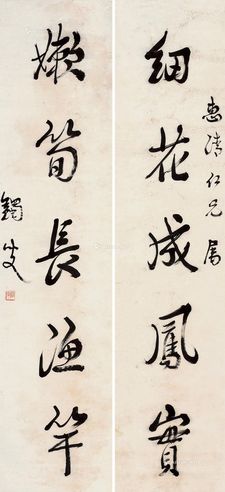 惠清仁兄屬
細花成鳳實
嫩筍長漁竿
蠲叟